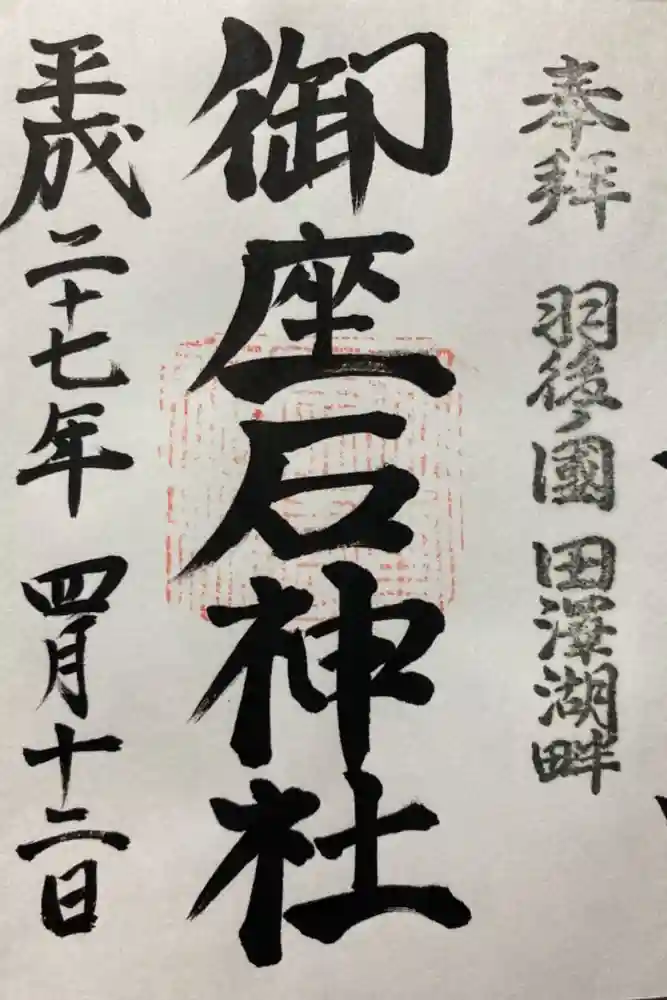 奉拝 羽後ノ國 田澤湖畔
御座石神社
平成二十七年 四月十二日